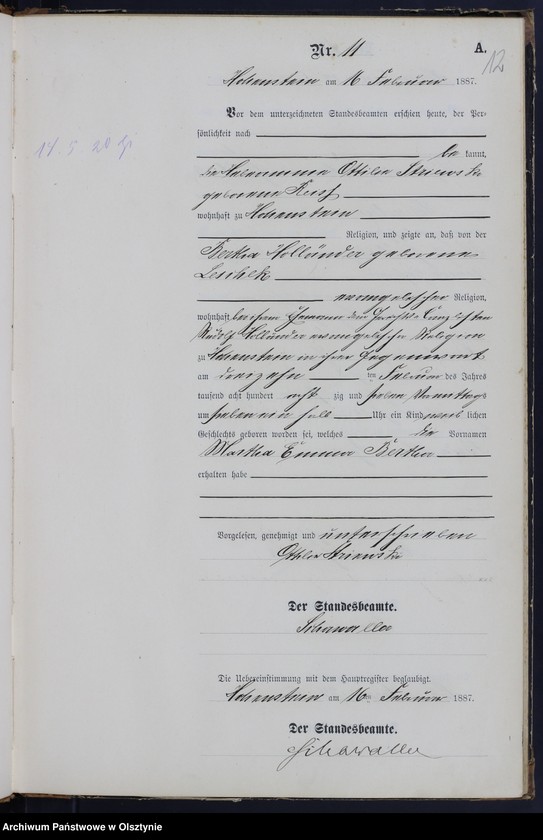 Nr. 11
A.
12
Hohenstein am 16 Februar 1887.
Vor dem unterzeichneten Standesbeamten erschien heute, der Per-
sönlichkeit nach
be kannt,
die Hebamme Ottilie
geborene
wohnhaft zu Hohenstein
Religion, und zeigte an, daß von der
Bertha Holländer geborene
evangelischer Religion,
wohnhaft bei ihrem Ehemann dem
Rudolf Holländer evangelischer Religion
zu Hohenstein in ihrer Gegenwart
am dreizehn ten Februar des Jahres
tausend acht hundert acht zig und sieben Vormittags
um sieben ein halb Uhr ein Kind weib lichen
Geschlechts geboren worden sei, welches die Vornamen
Martha Emma Bertha
erhalten habe
Vorgelesen, genehmigt und unterschrieben
Der Standesbeamte.
Die Uebereinstimmung mit dem Hauptregister beglaubigt.
Hohenstein am 16ten Februar 1887.
Der Standesbeamte.
Archiwum Państwowe w Olsztynie